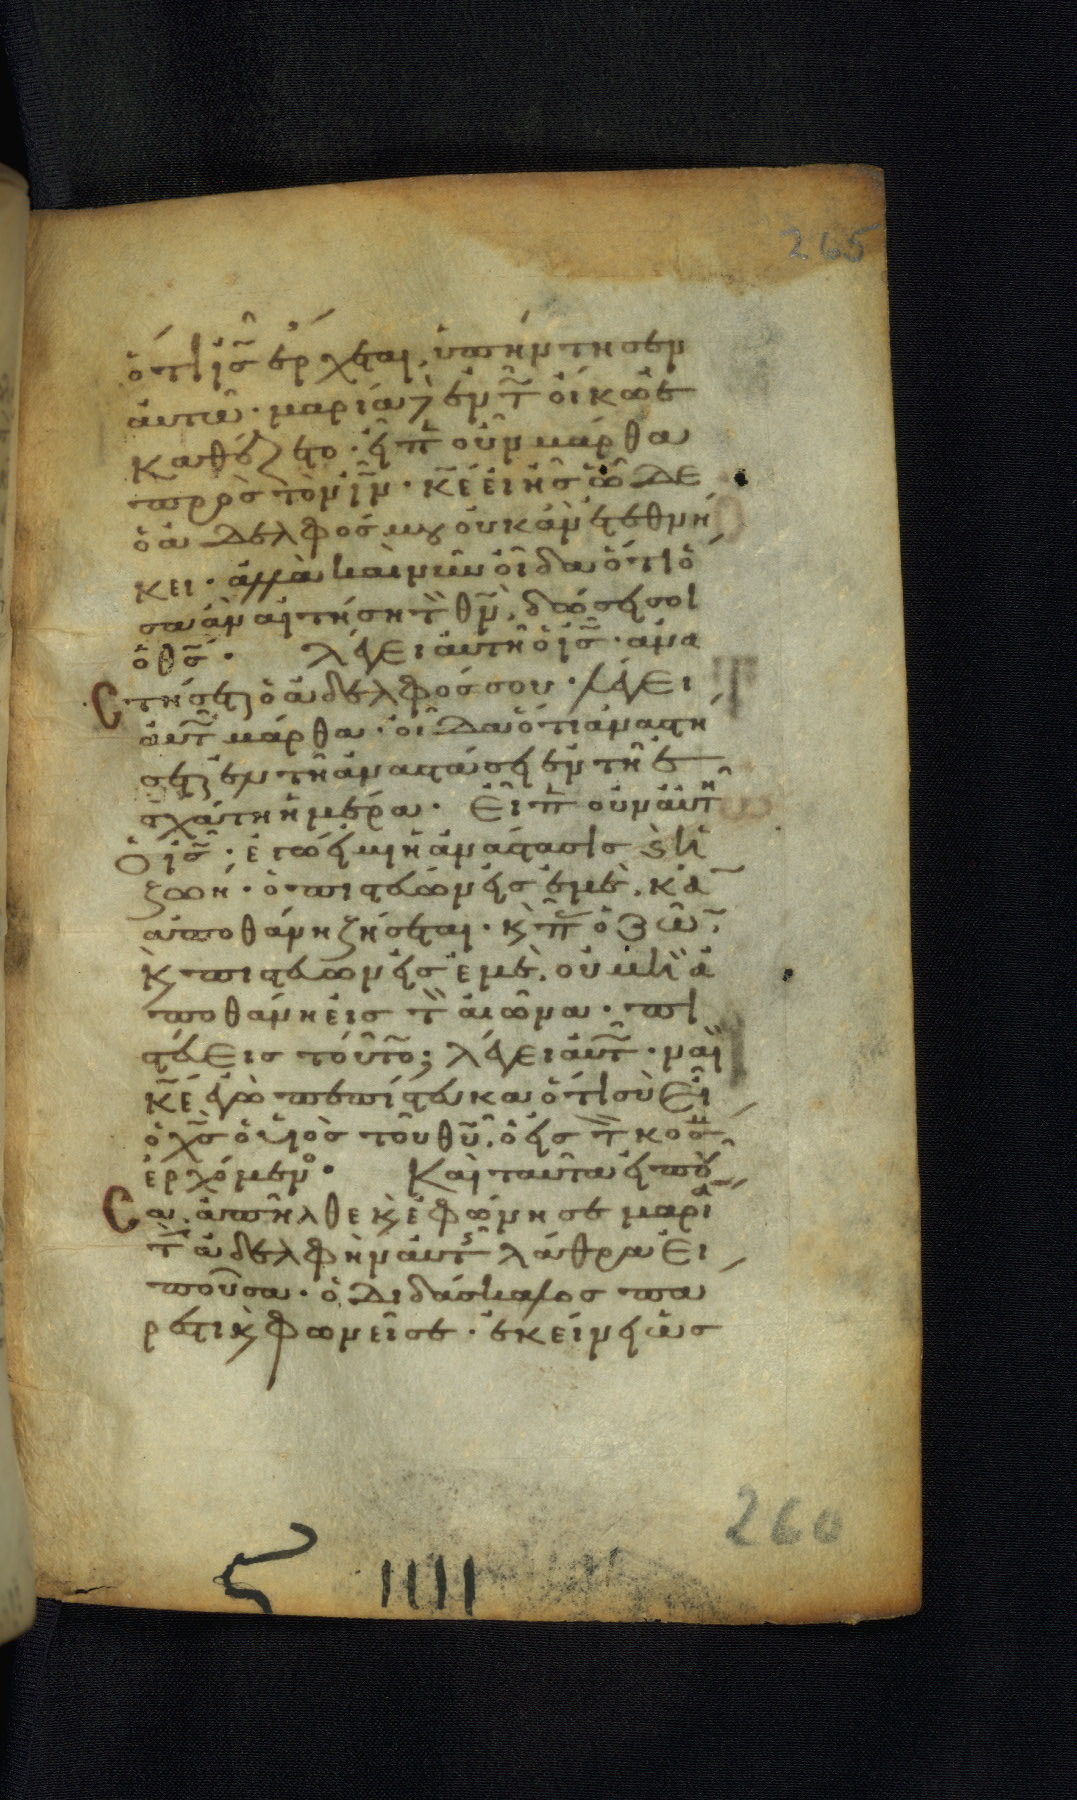 265
ὅτι ἰ̅ς̅ ἔρχεται, ὑπήντησεν
αὐτῶ· μαρία δὲ ἐν τ̅ οἴκω ἐ
καθέζετο· εἶπ̅ οὖν μάρθα
πρὸς τὸν ἰ̅ν̅· κ̅ε̅ εἰ ἦς ὧδε
ὁ ἀδελφός μου οὐκ ἂν ἐτεθνή
κει· ἀλλὰ καὶ νῦν οἶδα ὅτι ὅ
σα ἂν αἰτήση τ̅ θ̅ν̅, δώσει σοι
ὁ θ̅ς̅· λέγει αὐτῆ ὁ ἰ̅ς̅· ἀνα
στήσεται ὁ ἀδελφός σου· λέγει
αὐτ̅ μάρθα· οἶδα ὅτι ἀναστή
σεται ἐν τῆ ἀναστάσει ἐν τῆ ἐ
σχάτη ἡμέρα· εἶπ̅ οὖν αὐτῆ
ὁ ἰ̅ς̅· ἐγώ εἰμι ἡ ἀνάστασις καὶ ἡ
ζωή· ὁ πιστεύων εἰς ἐμὲ, κἂ̅
ἀποθάνη ζήσεται· κ̀ π̅ ὁ ζῶ̅
κ̀ πιστεύων εἰς ἐμὲ, οὐ μὴ ἀ
ποθάνη εἰς τ̅ αἰῶνα· πι
στεύεις τοῦτο; λέγει αὐτ̅· ναὶ
κ̅ε̅ ἐγὼ πεπίστευκα ὅτι σὺ εἶ
ὁ χ̅ς̅ ὁ υἱὸς τοῦ θ̅υ̅, ὁ εἰς τ̅ κόσμ
ἐρχόμενο· Καὶ ταῦτα εἰποῦ
σα, ἀπῆλθε κ̀ ἐφώνησε μαρία
τ̅ ἀδελφὴν αὐτῆς λάθρα εἰ
ποῦσα· ὁ διδάσκαλος πά
ρεστι κ̀ φωνεῖ σε· ἐκείνη ὡς
260